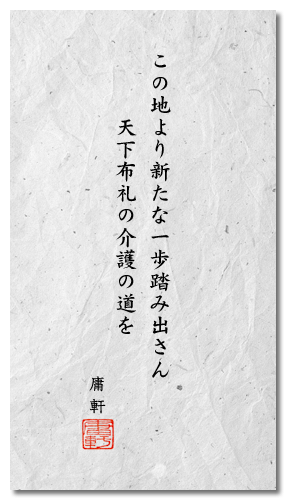 この地より新たな一歩踏み出さん
天下布礼の介護の道を
庸軒
庸軒